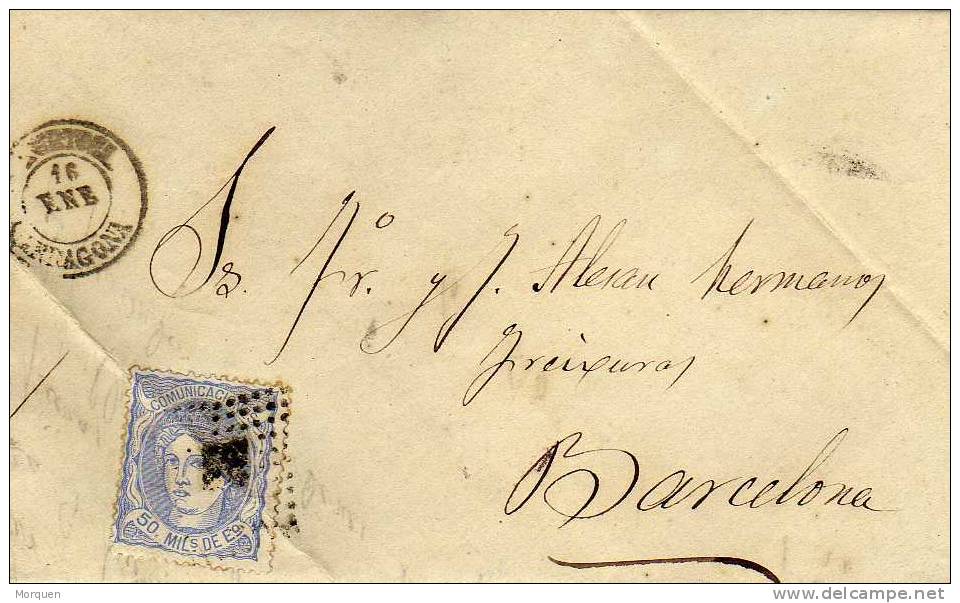 16
ENE
TARRAGONA
Ss. Fr.º y J. Alexan hermanos
Freixuras
Barcelona
COMUNICAC
50. MILS DE Eº.
Morquen
delcampe.net